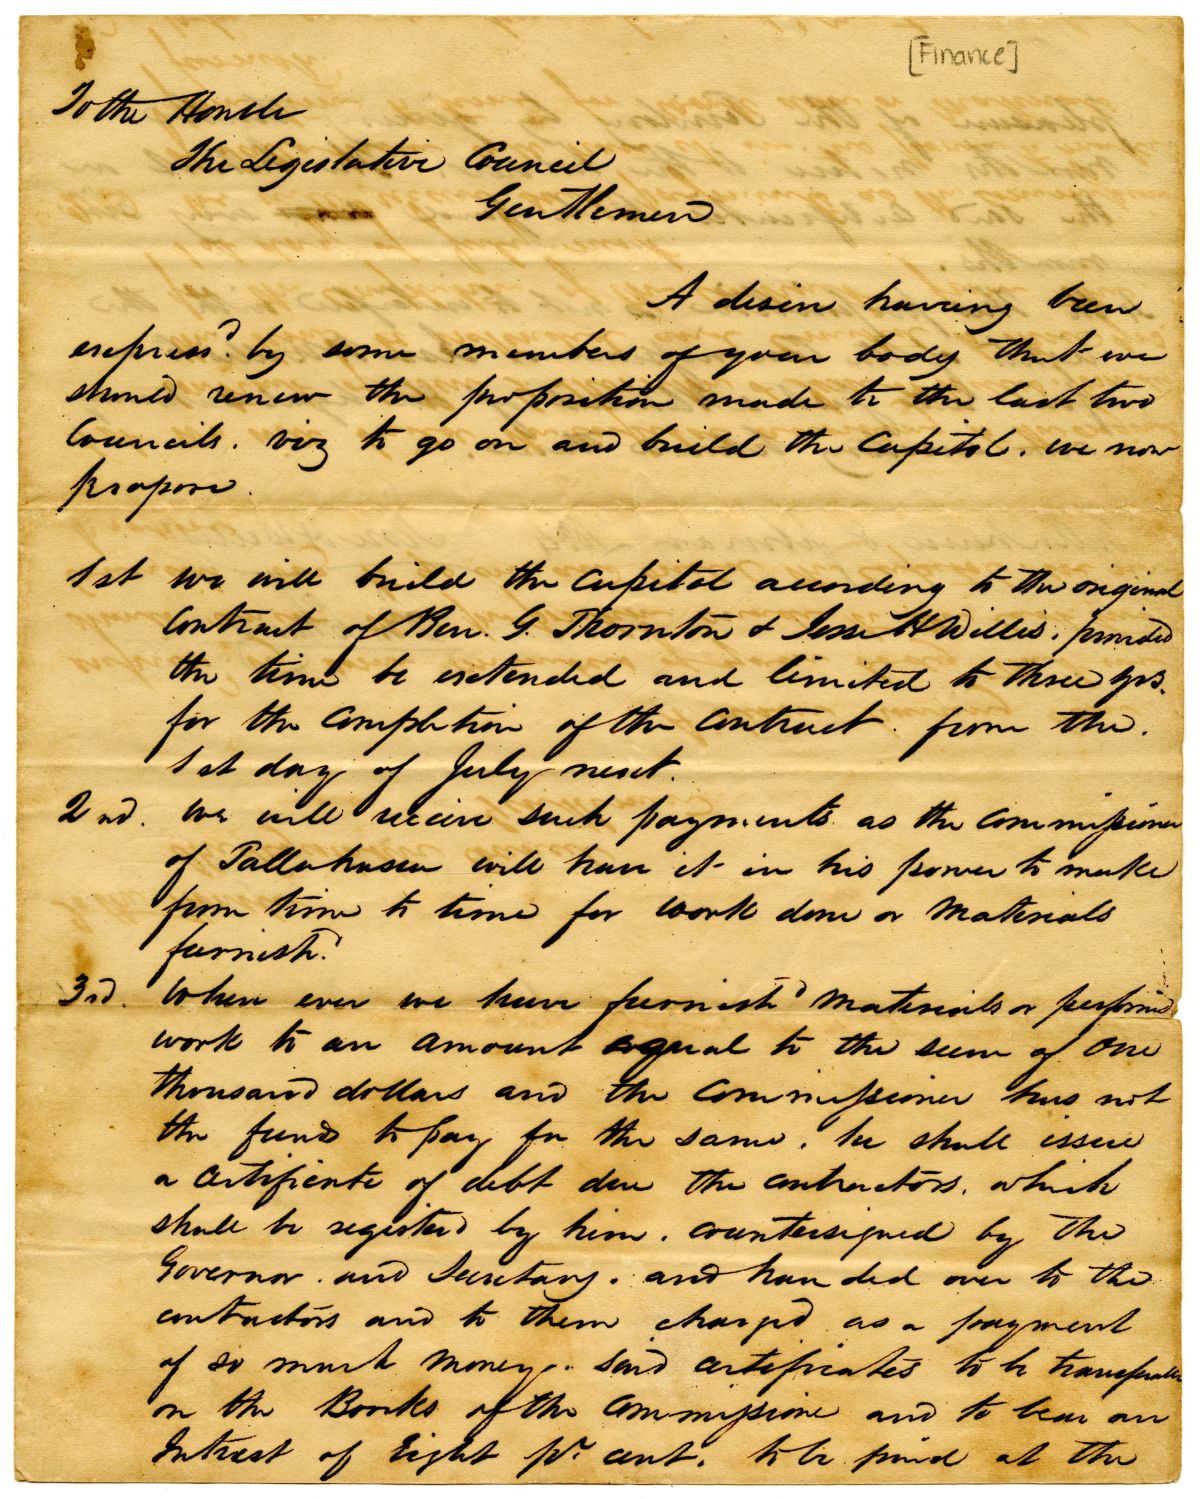 [Finance]
To the Honble
The Legislative Council
Gentlemen
A desire having been
express'd. by some members of your body that we
should renew the proposition made to the last two
Councils. viz to go on and build the Capitol. we now
propose.
1st we will build the Capitol according to the original
Contract of Ben. G. Thornton & Jesse H Willis. provided
the time be extended and limited to three yrs.
for the Completion of the Contract. from the.
1st day of July next.
2nd. we will receive such payments as the Commissioner
of Tallahassee will have it in his power to make
from time to time for work done or Materials
furnish'd.
3rd. When ever we have furnish'd Materials or performd
work to an amount equal to the sum of One
thousand dollars and the Commissioner has not
the funds to pay for the same. he shall issue
a Certificate of debt due the contractors. which
shall be registerd by him. countersigned by the
Governor. and Secretary. and handed over to the
contractors and to them charg'd as a payment
of so much Money. Said certificates to be transferable
on the Books of the Commissioner and to bear an
Intrest of Eight pr. cent. to be paid at the